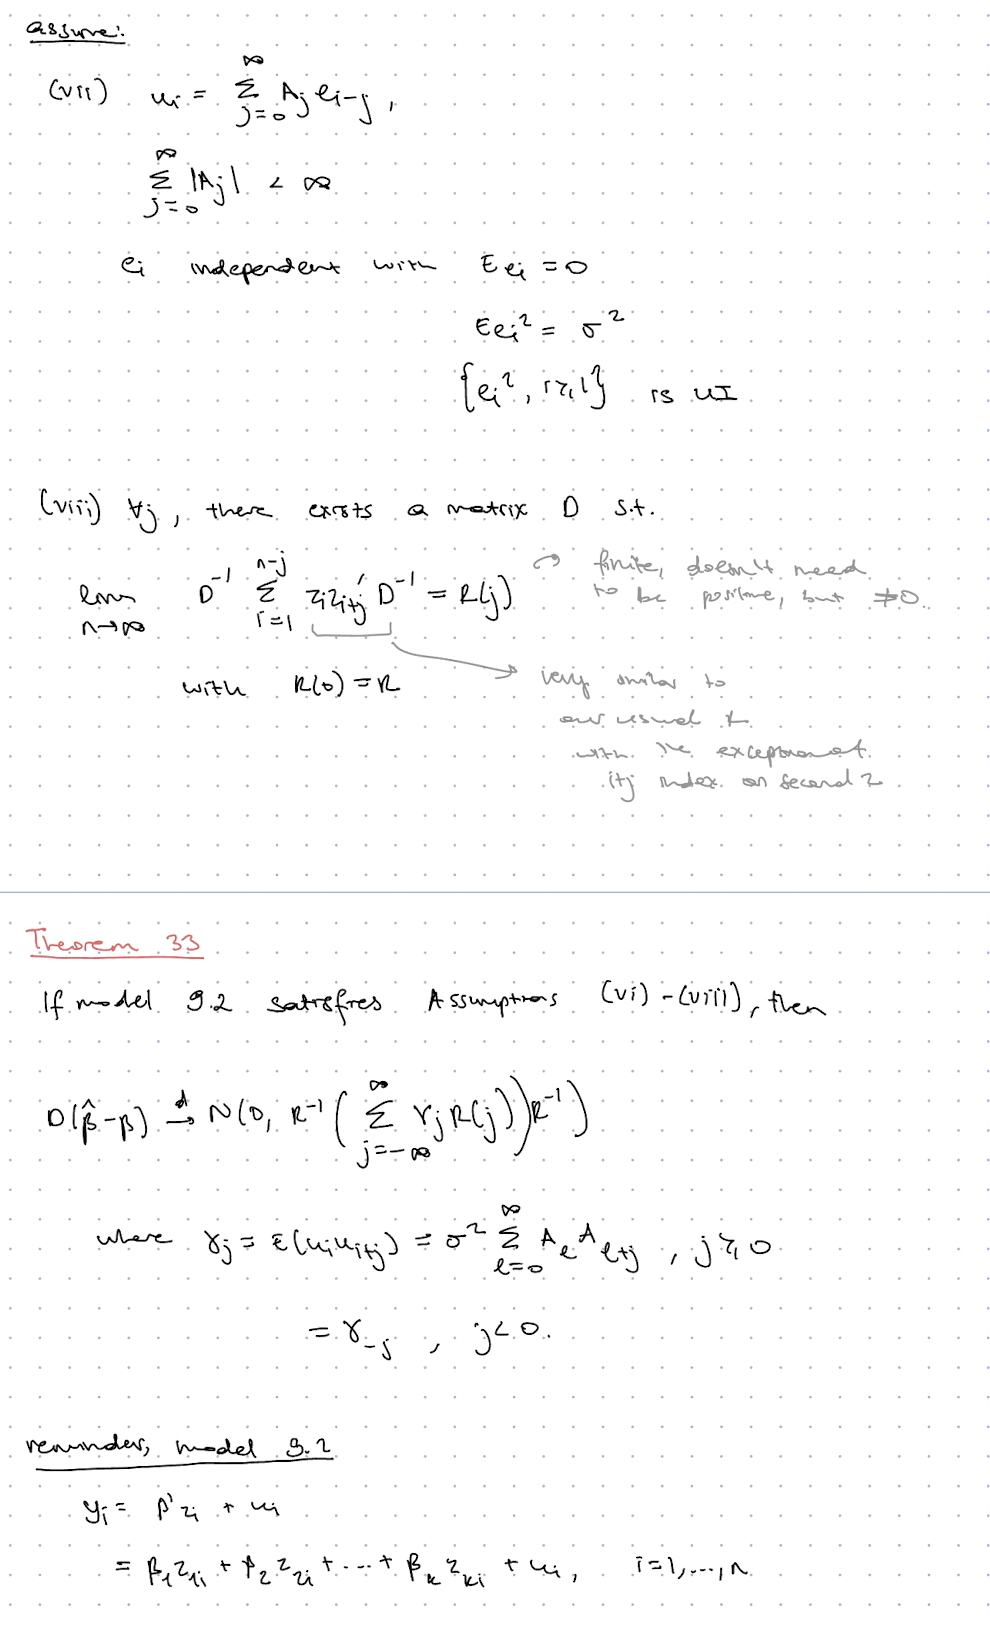 assume:
(vii) uᵢ = ∑_{j=0}^{∞} Aⱼ e_{i-j} ,
∑_{j=0}^{∞} |Aⱼ| < ∞
eᵢ independent with Eeᵢ = 0
Eeᵢ² = σ²
{eᵢ², i⩾1} is UI
(viii) ∀j, there exists a matrix D s.t.
lim_{n→∞} D⁻¹ ∑_{i=1}^{n-j} zᵢz_{i+j}' D⁻¹ = R(j)
→ finite, doesn't need
to be positive, but ≠0.
with R(0) = R
→ very similar to
our usual t
with the exception of
i+j index on second z
Theorem 33
If model 9.2 satisfies Assumptions (vi) - (viii), then
D(β̂-β) →ᵈ N(0, R⁻¹ ( ∑_{j=-∞}^{∞} γⱼ R(j) ) R⁻¹ )
where γⱼ = E(uᵢu_{i+j}) = σ² ∑_{ℓ=0}^{∞} A_ℓ A_{ℓ+j} , j⩾0
= γ_{-j} , j<0.
reminder, model 9.2
yᵢ = β'zᵢ + uᵢ
= β₁z₁ᵢ + β₂z₂ᵢ + ... + βₖzₖᵢ + uᵢ, i=1,...,n